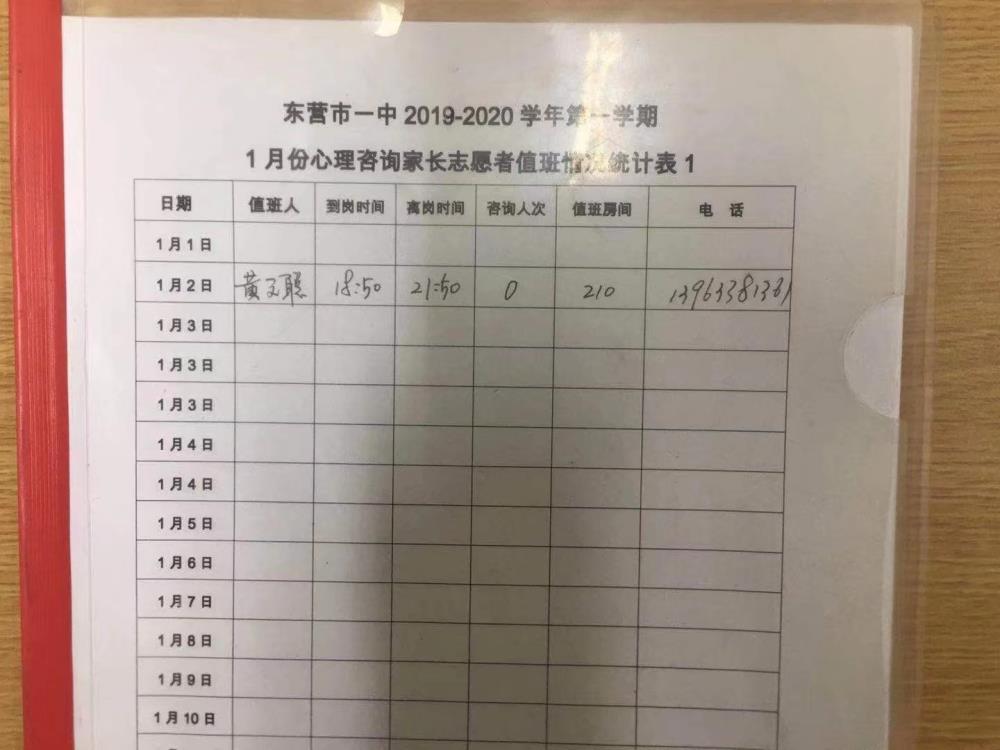 东营市一中 2019-2020 学年第一学期
1 月份心理咨询家长志愿者值班情况统计表 1
日期 值班人 到岗时间 离岗时间 咨询人次 值班房间 电 话
1 月 1 日
1 月 2 日 黄文聪 18:50 21:50 0 210 13963381361
1 月 3 日
1 月 3 日
1 月 3 日
1 月 4 日
1 月 4 日
1 月 5 日
1 月 6 日
1 月 7 日
1 月 8 日
1 月 9 日
1 月 10 日